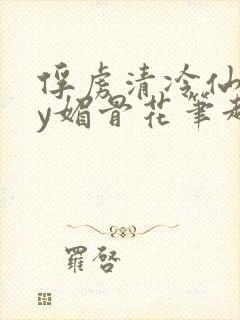 俘虏清冷仙
y媚骨花笔趣
羅啓